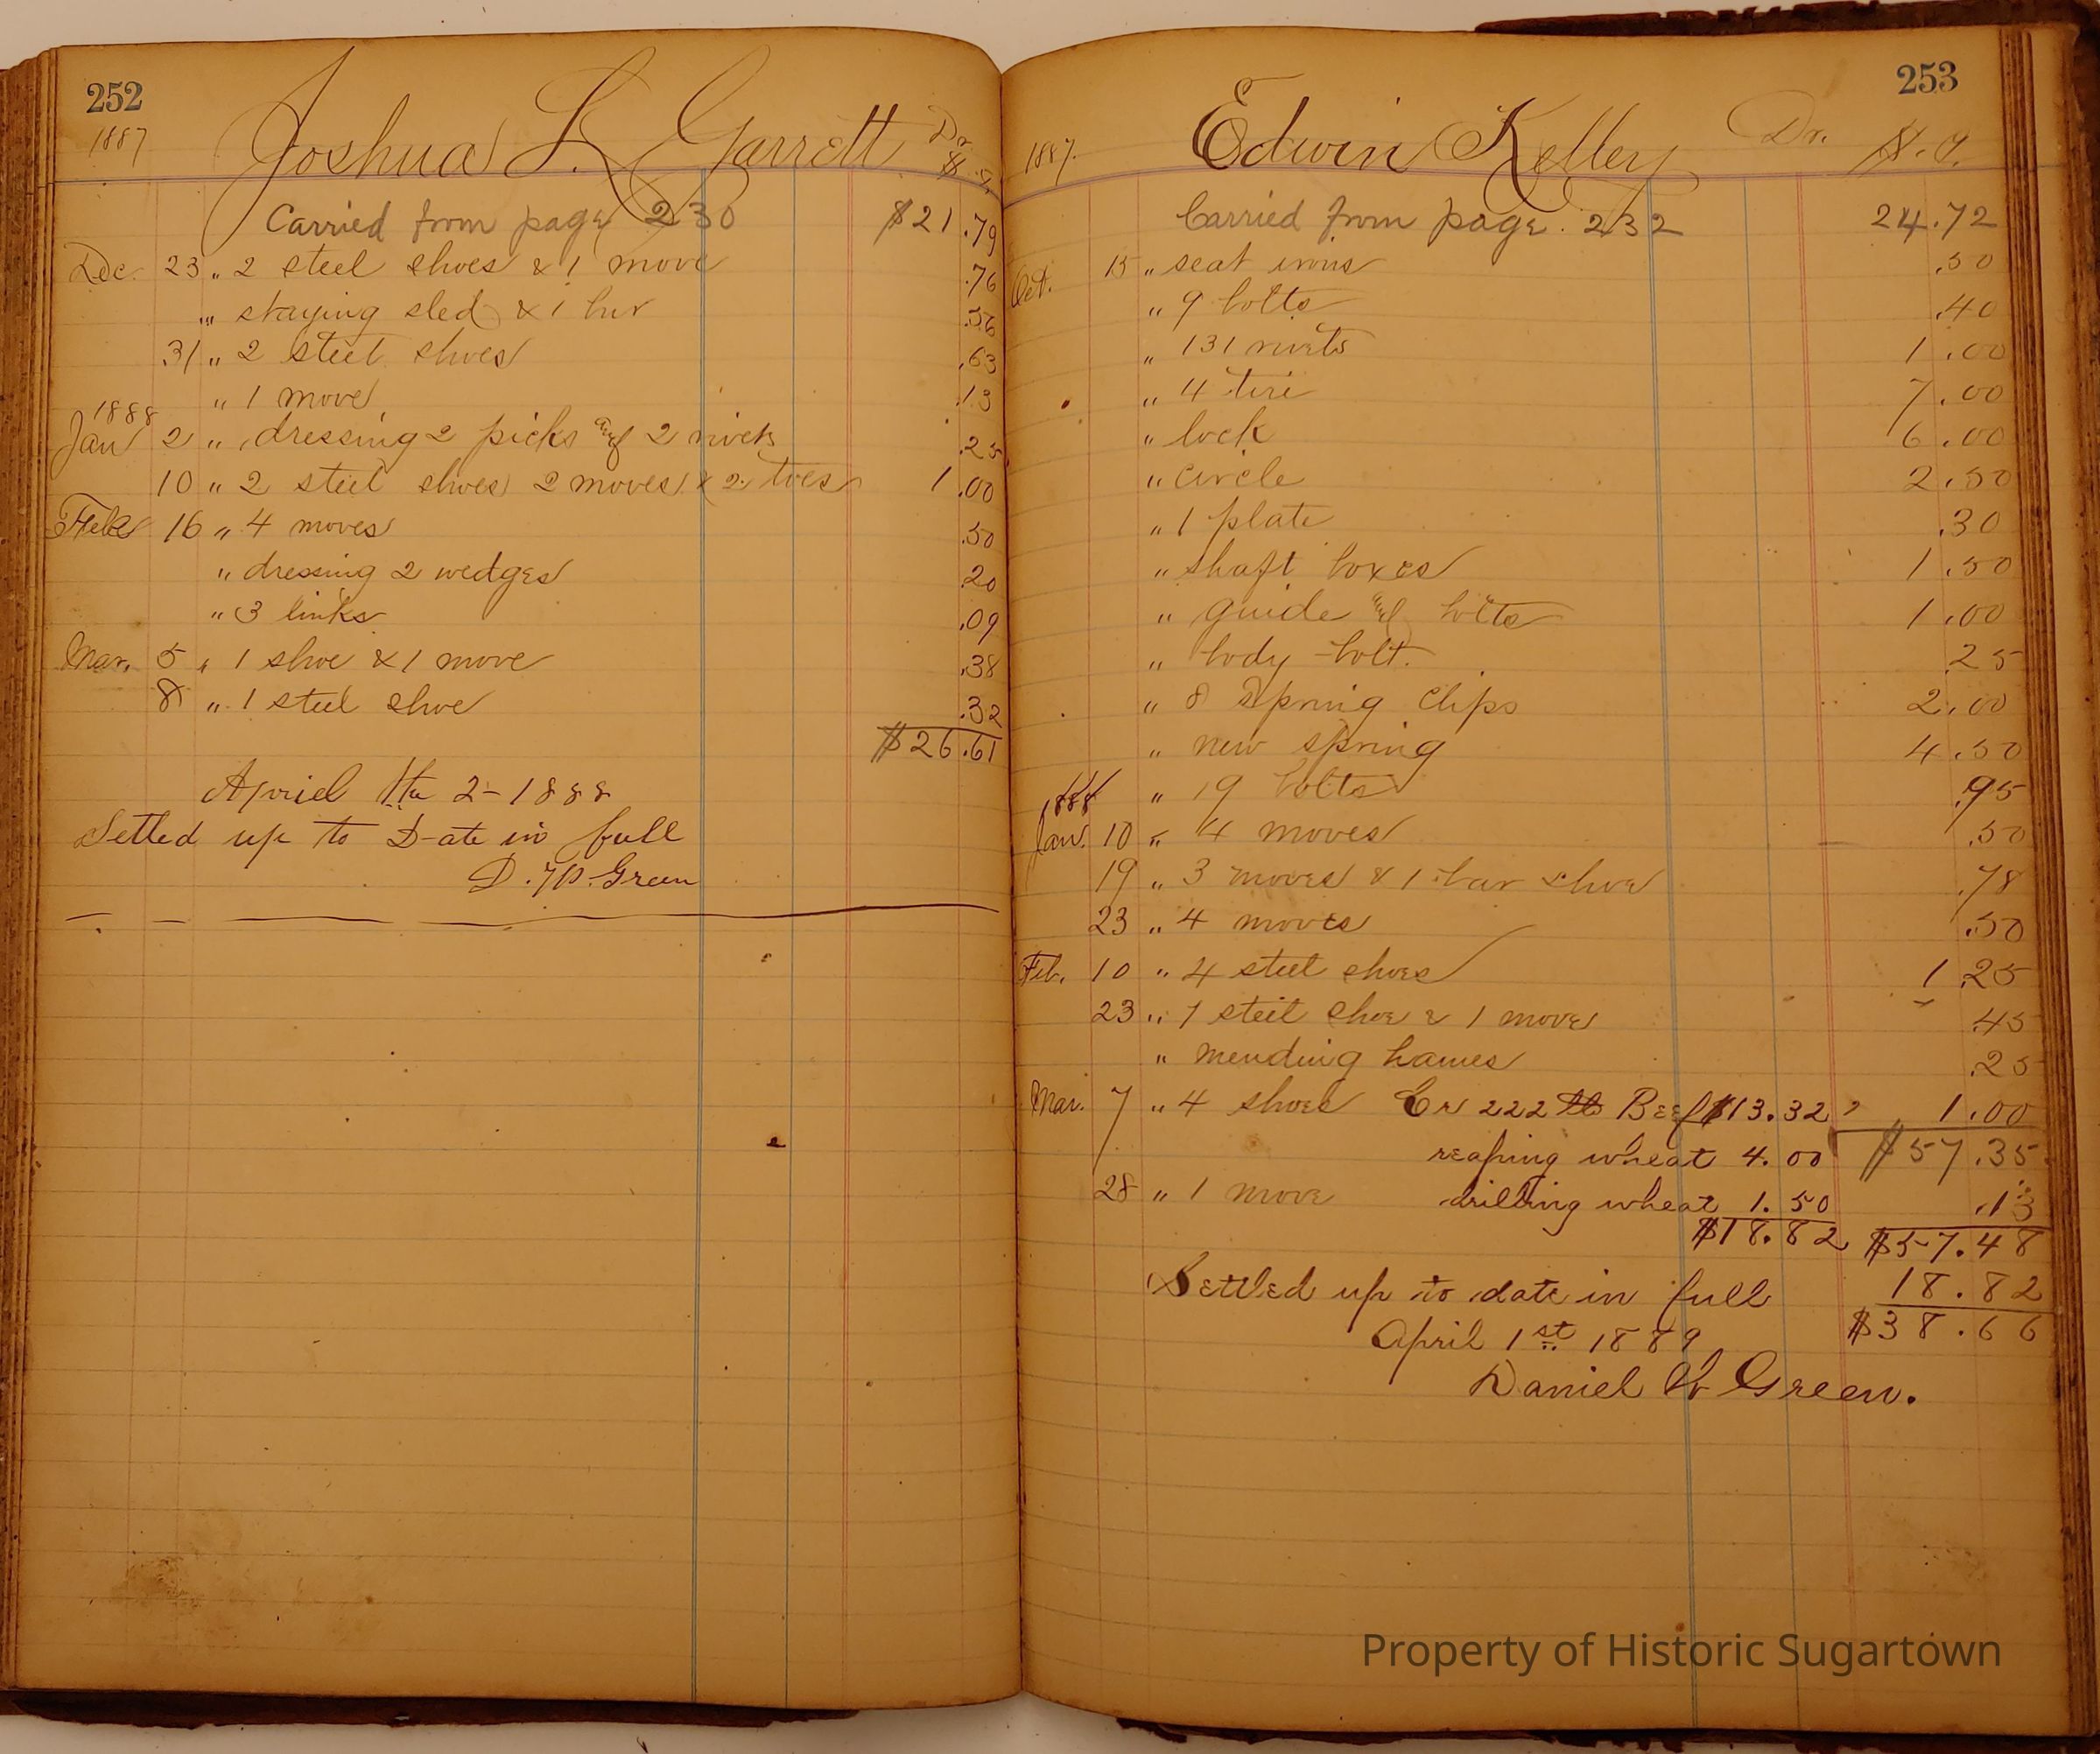 252
1887 Joshua L. Garrett Dr
$
Carried from page 230 $21.79
Dec. 23 „ 2 steel shoes & 1 move .76
„ staying sled & 1 bur .56
31 „ 2 steel shoes .63
„ 1 move .13
1888
Jan 2 „ dressing 2 picks and 2 rivets .25
10 „ 2 steel shoes 2 moves & 2 toes 1.00
Feb 16 „ 4 moves .50
„ dressing 2 wedges .20
„ 3 links .09
Mar. 5 „ 1 shoe & 1 move .38
8 „ 1 steel shoe .32
$26.61
Apriel the 2-1888
Setled up to D-ate in full
D. W. Green
253
1887. Edwin Kelley Dr.
Carried from page. 232 24.72
Oct. 15 „ seat irons .50
„ 9 bolts .40
„ 131 rivets 1.00
„ 4 tire 7.00
„ lock 6.00
„ circle 2.50
„ 1 plate .30
„ shaft boxes 1.50
„ guide and bolts 1.00
„ body bolt. .25
„ 8 spring clips 2.00
„ new spring 4.50
„ 19 bolts .95
1888
Jan. 10 „ 4 moves .50
19 „ 3 moves & 1 bar shoe .78
23 „ 4 moves .50
Feb. 10 „ 4 steel shoes 1.25
23 „ 1 steel shoe & 1 move .45
„ mending hames .25
Mar. 7 „ 4 shoes Cr 222 lb Beef $13.32 1.00
reaping wheat 4.00 $57.35
28 „ 1 move drilling wheat 1.50 .13
$18.82 $57.48
Settled up to date in full 18.82
April 1st 1889 $38.66
Daniel W Green.
Property of Historic Sugartown